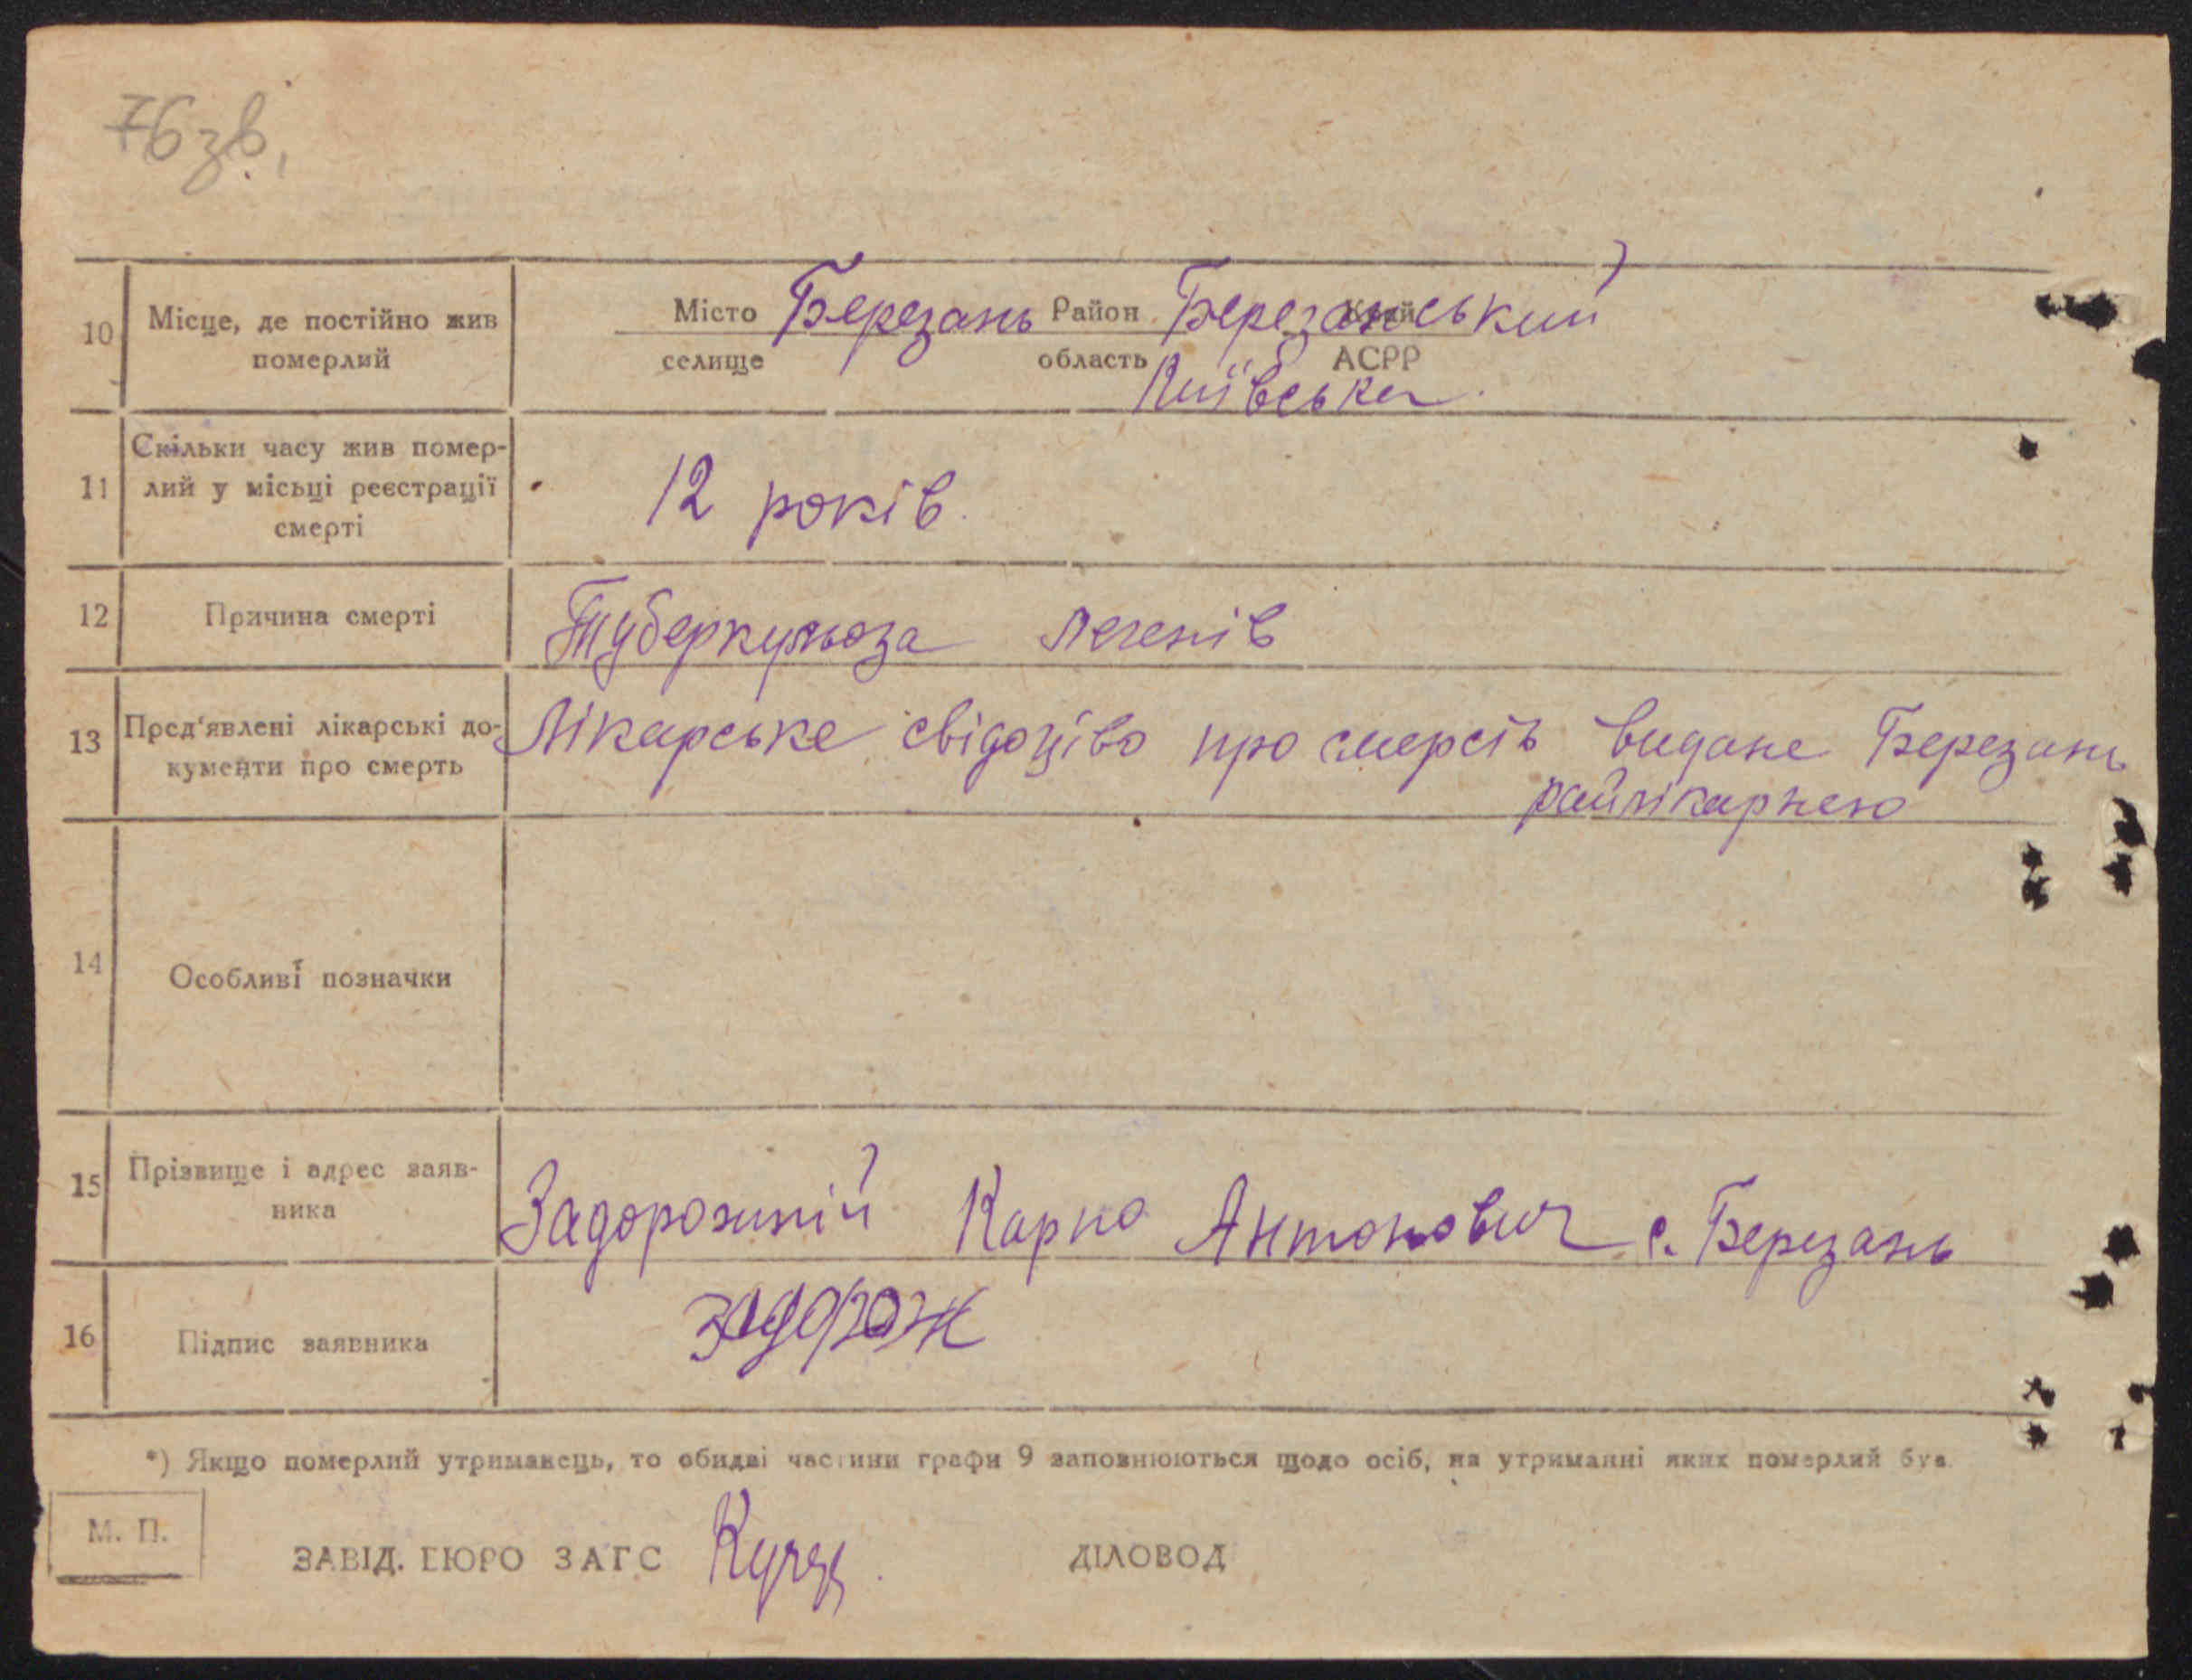 76 зв.
10 Місце, де постійно жив Місто Березань Район Березанський
померлий селище область АСРР
Київська
Скільки часу жив помер-
11 лий у місьці реєстрації 12 років
смерті
12 Причина смерті Туберкульоза легенів
13 Пред'явлені лікарські до- Лікарське свідоцтво про смерсть видане Березань
кументи про смерть райлікарнею
14 Особливі позначки
15 Прізвище і адрес заяв- Задорожній Карпо Антонович с. Березань
ника
16 Підпис заявника задорож
*) Якщо померлий утриманець, то обидві частини графи 9 заповнюються щодо осіб, на утриманні яких померлий був.
М. П.
ЗАВІД. БЮРО ЗАГС ДІЛОВОД